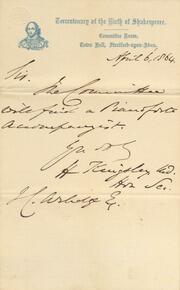 Tercentenary of the Birth of Shakespeare.
Committee Room,
Town Hall, Stratford-upon-Avon,
April 6, 1864
Sir.
The Committee
will find a Pianoforte
Accompanyist.
H Kingsley
Hon Sec.
Esq.